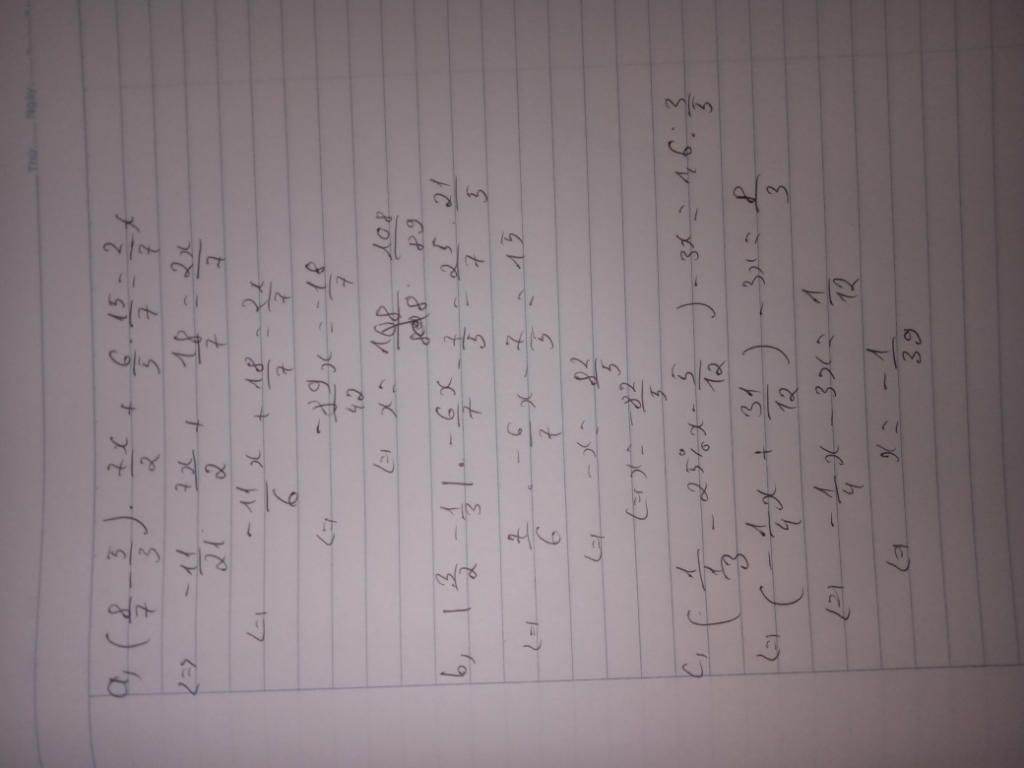 Thứ Ngày
a, (8/7 - 3/3) . 7x/2 + 6/5 . 15/7 = 2/7 x
<=> -11/21 . 7x/2 + 18/7 = 2x/7
<=> -11/6 x + 18/7 = 2x/7
<=> -89/42 x = -18/7
<=> x = 108/89
b, |3/2 - 1/3| . -6/7 x - 7/5 = -25/7 . 21/5
<=> 7/6 . -6/7 x - 7/5 = -15
<=> -x = 82/5
<=> x = -82/5
c, (1/3 - 25% x - 5/12) - 3x = 1,6 : 3/5
<=> (-1/4 x + 31/12) - 3x = 8/3
<=> -1/4 x - 3x = 1/12
<=> x = -1/39